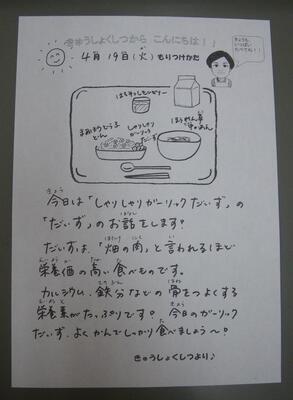 きゅうしょくしつから こんにちは!!
4月 19日(火) もりつけかた
きょうも、
いっぱい
たべてね!!
はちみつレモンゼリー
まめまめとうふ
どん
しゃりしゃり
ガーリック
だいず
ほうれん草
中めん
きょう
今日は「しゃりしゃりガーリックだいず」の
はなし
「だいず」のお話をします♪
はたけ にく い
だいずは、「畑の肉」と言われるほど
えいようか たか た
栄養価の高い食べものです。
てつぶん ほね
カルシウム、鉄分などの骨をつよくする
えいようそ きょう
栄養素がたっぷりです♪ 今日のガーリック
た
だいず、よくかんでしっかり食べましょう〜♪
きゅうしょくしつより♪